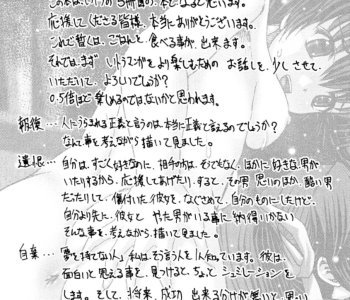 この本は、いけの5冊目の、本になると思います。
応援してくださる皆様、本当にありがとうございます。
これで暫くは、ごはんと 食べる事が、出来ます。
それでは、まず いちうえがを より楽しむための お話しを、少し させて、
いただいて、よろしいでしょうか?
0.5倍ほど 楽しめるのではないかと思われます。
報復… 人にうらまれる正義と言うのは、本当に正義と言えるのでしょうか?
なんて事を考えながら描いて見ました。
遺恨… 自分は、すごく好きなのに、相手の方は、そでもなく、ほかに好きな男が
いたりするから、応援してあげたり、すると、その男 思いのほか 酷い男
だったりして、傷付いた彼女を、なぐさめて、自分のものにしたけど、
自分より先に、彼女と やった男がいる事に納得いかない
そんな事を、考えながら、描いて見ました。
自棄… 「夢を捨てない人」私は、そう言う人を「一人」知っています。彼は、
面白いと思える事を、見つけると、ちょっと シュミレーションを
します。そして、将来、成功 出来る分けが無いと、思い